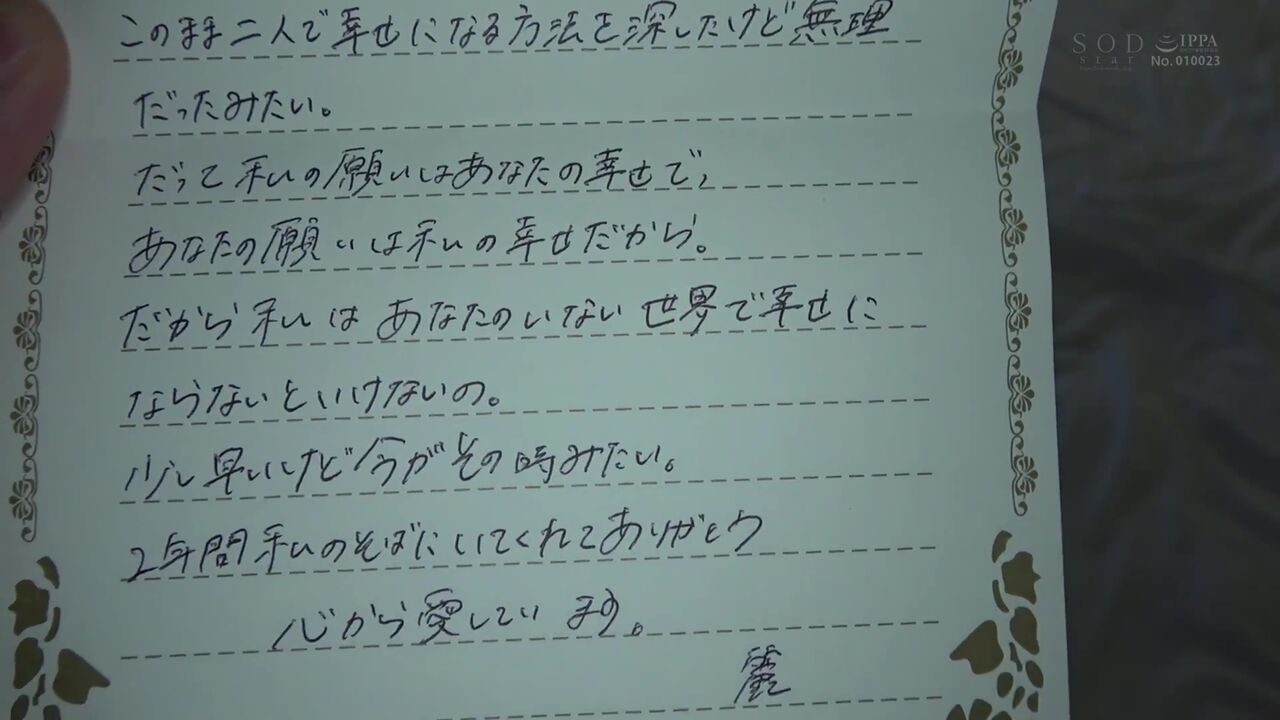 このまま二人で幸せになる方法を深したけど無理
だったみたい。
だって私の願いはあなたの幸せで、
あなたの願いは私の幸せだから。
だから私はあなたのいない世界で幸せに
ならないといけないの。
少し早いけど今がその時みたい。
2年間私のそばにいてくれてありがとう
心から愛しています。
麗
SOD
star
IPPA
No. 010023